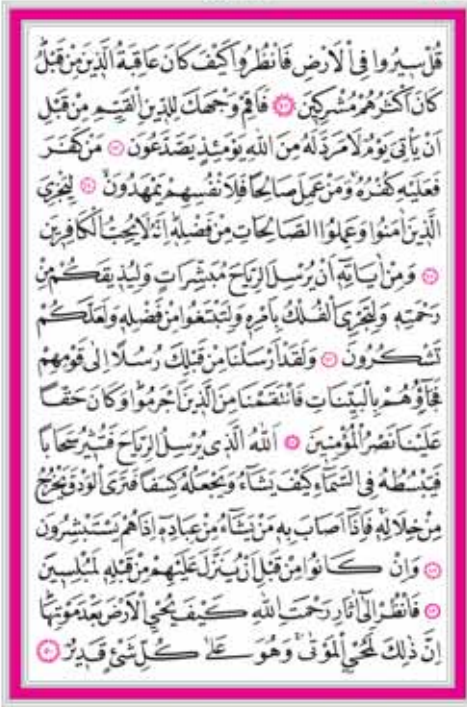 قُلْ سِيرُوا فِي الْاَرْضِ فَانْظُرُوا كَيْفَ كَانَ عَاقِبَةُ الَّذِينَ مِنْ قَبْلُ
كَانَ اَكْثَرُهُمْ مُشْرِكِينَ ﴿٤٢﴾ فَاَقِمْ وَجْهَكَ لِلدِّينِ الْقَيِّمِ مِنْ قَبْلِ
اَنْ يَأْتِيَ يَوْمٌ لَا مَرَدَّ لَهُ مِنَ اللّٰهِ يَوْمَئِذٍ يَصَّدَّعُونَ ﴿٤٣﴾ مَنْ كَفَرَ
فَعَلَيْهِ كُفْرُهُ وَمَنْ عَمِلَ صَالِحًا فَلِاَنْفُسِهِمْ يَمْهَدُونَ ﴿٤٤﴾ لِيَجْزِيَ
الَّذِينَ اٰمَنُوا وَعَمِلُوا الصَّالِحَاتِ مِنْ فَضْلِهِ اِنَّهُ لَا يُحِبُّ الْكَافِرِينَ
﴿٤٥﴾ وَمِنْ اٰيَاتِهِ اَنْ يُرْسِلَ الرِّيَاحَ مُبَشِّرَاتٍ وَلِيُذِيقَكُمْ مِنْ
رَحْمَتِهِ وَلِتَجْرِيَ الْفُلْكُ بِاَمْرِهِ وَلِتَبْتَغُوا مِنْ فَضْلِهِ وَلَعَلَّكُمْ
تَشْكُرُونَ ﴿٤٦﴾ وَلَقَدْ اَرْسَلْنَا مِنْ قَبْلِكَ رُسُلًا اِلٰى قَوْمِهِمْ
فَجَاؤُهُمْ بِالْبَيِّنَاتِ فَانْتَقَمْنَا مِنَ الَّذِينَ اَجْرَمُوا وَكَانَ حَقًّا
عَلَيْنَا نَصْرُ الْمُؤْمِنِينَ ﴿٤٧﴾ اَللّٰهُ الَّذِي يُرْسِلُ الرِّيَاحَ فَتُثِيرُ سَحَابًا
فَيَبْسُطُهُ فِي السَّمَاءِ كَيْفَ يَشَاءُ وَيَجْعَلُهُ كِسَفًا فَتَرَى الْوَدْقَ يَخْرُجُ
مِنْ خِلَالِهِ فَاِذَا اَصَابَ بِهِ مَنْ يَشَاءُ مِنْ عِبَادِهِ اِذَا هُمْ يَسْتَبْشِرُونَ
﴿٤٨﴾ وَاِنْ كَانُوا مِنْ قَبْلِ اَنْ يُنَزَّلَ عَلَيْهِمْ مِنْ قَبْلِهِ لَمُبْلِسِينَ
﴿٤٩﴾ فَانْظُرْ اِلٰى اٰثَارِ رَحْمَتِ اللّٰهِ كَيْفَ يُحْيِي الْاَرْضَ بَعْدَ مَوْتِهَا
اِنَّ ذٰلِكَ لَمُحْيِي الْمَوْتٰى وَهُوَ عَلٰى كُلِّ شَيْءٍ قَدِيرٌ ﴿٥٠﴾